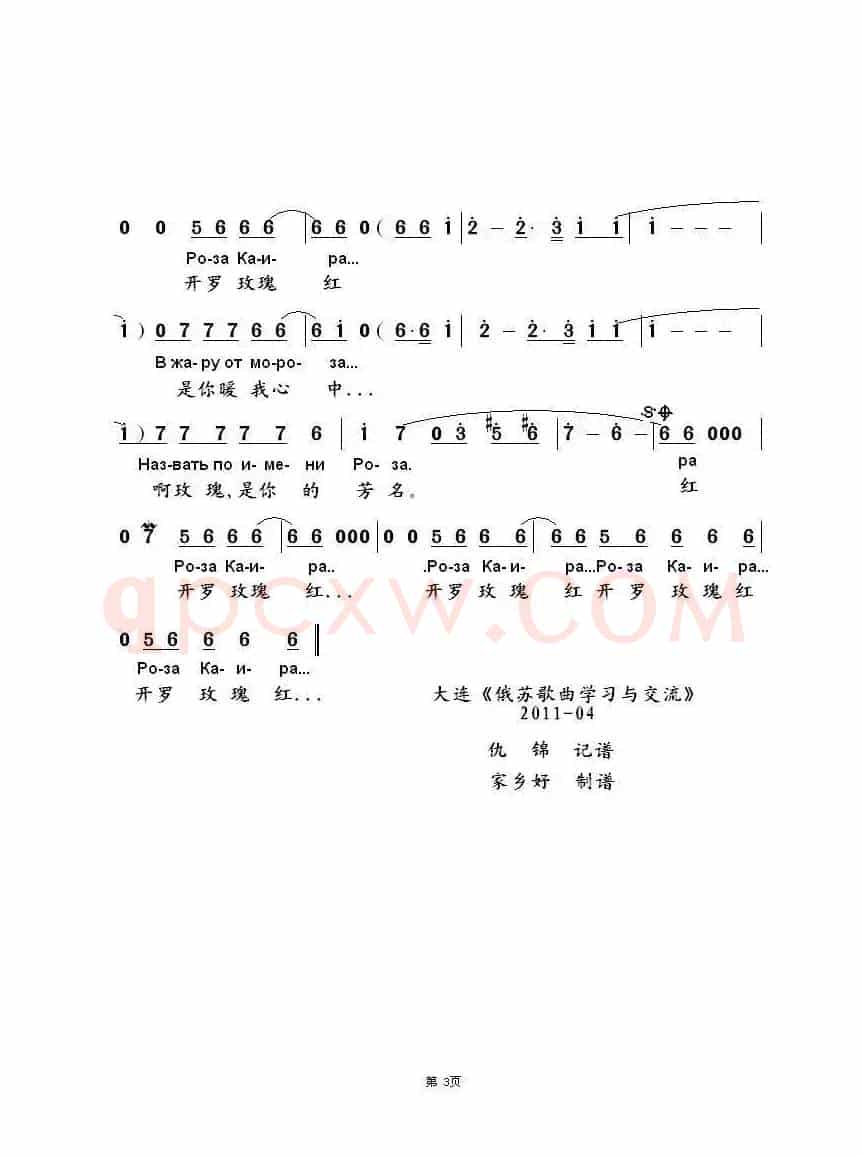 0 0 5 6 6 6 | 6 6 0 ( 6 6 i | 2 - 2· 3 i i | i - - - |
Ро-за Ка-и- ра...
开罗 玫瑰 红
i ) 0 7 7 7 6 6 | 6 i 0 ( 6·6 i | 2 - 2· 3 i i | i - - - |
В жа-ру от мо-ро- за...
是你暖 我心 中...
i ) 7 7 7 7 6 | i 7 0 3 #5 #6 | 7 - 6 - | 6 6 0 0 0 |
Наз-вать по и- ме- ни Ро- за. ра
啊玫 瑰,是你 的 芳 名。 红
0 7 5 6 6 6 | 6 6 0 0 0 | 0 0 5 6 6 6 | 6 6 5 6 6 6 6 |
Ро-за Ка-и- ра.. ..Ро-за Ка-и- ра...Ро-за Ка- и- ра...
开罗 玫瑰 红... 开罗 玫 瑰 红 开 罗 玫 瑰 红
qpcxw.COM
0 5 6 6 6 6 ‖
Ро-за Ка- и- ра...
开 罗 玫 瑰 红...
大连《俄苏歌曲学习与交流》
2011-04
仇 锦 记谱
家乡好 制谱
第 3页